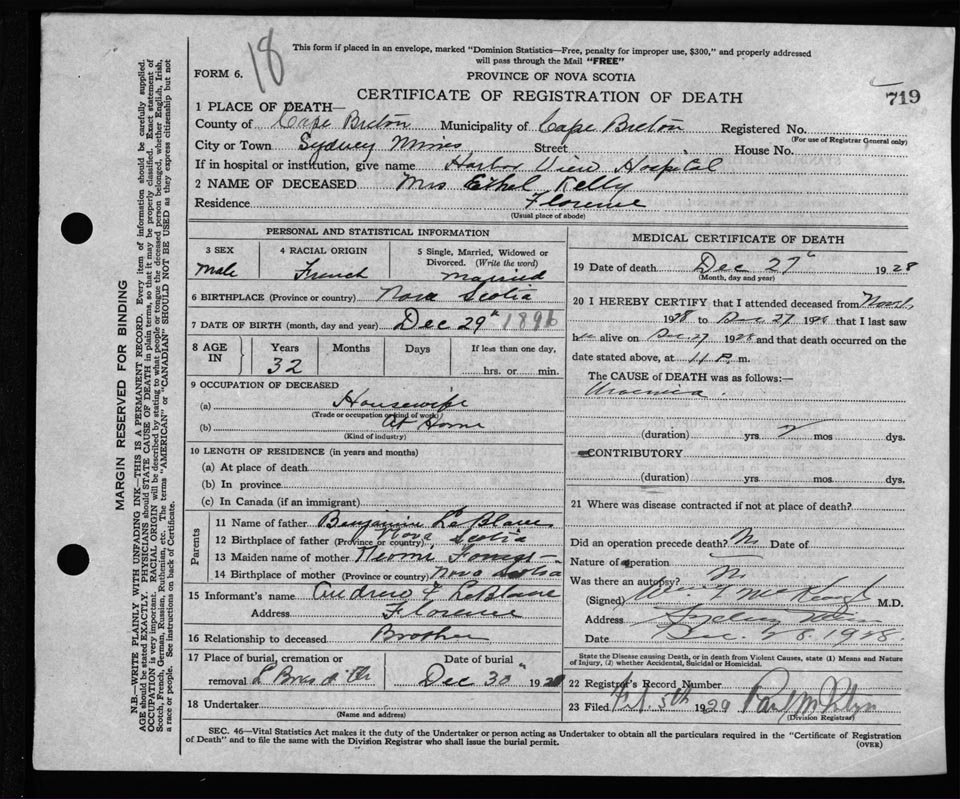 18
This form if placed in an envelope, marked "Dominion Statistics—Free, penalty for improper use, $300," and properly addressed
will pass through the Mail "FREE"
FORM 6.
PROVINCE OF NOVA SCOTIA
CERTIFICATE OF REGISTRATION OF DEATH
719
1 PLACE OF DEATH—
County of Cape Breton Municipality of Cape Breton Registered No.
(For use of Registrar General only)
City or Town Sydney Mines Street House No.
If in hospital or institution, give name Harbor View Hospital
2 NAME OF DECEASED Mrs Ethel Kelly
Residence Florence
(Usual place of abode)
PERSONAL AND STATISTICAL INFORMATION
3 SEX
Male
4 RACIAL ORIGIN
French
5 Single, Married, Widowed or
Divorced. (Write the word)
Married
6 BIRTHPLACE (Province or country) Nova Scotia
7 DATE OF BIRTH (month, day and year) Dec 29th 1896
8 AGE
IN
Years
32
Months
Days
If less than one day,
hrs. or min.
9 OCCUPATION OF DECEASED
(a) Housewife
(Trade or occupation or kind of work)
(b) At Home
(Kind of industry)
10 LENGTH OF RESIDENCE (in years and months)
(a) At place of death
(b) In province
(c) In Canada (if an immigrant)
Parents
11 Name of father Benjamin LeBlanc
12 Birthplace of father (Province or country) Nova Scotia
13 Maiden name of mother
14 Birthplace of mother (Province or country) Nova Scotia
15 Informant's name Andrew F LeBlanc
Address Florence
16 Relationship to deceased Brother
17 Place of burial, cremation or
removal
Date of burial
Dec 30th 1928
18 Undertaker
(Name and address)
MEDICAL CERTIFICATE OF DEATH
19 Date of death Dec 27th 1928
(Month, day and year)
20 I HEREBY CERTIFY that I attended deceased from
1928 to Dec 27 1928 that I last saw
h alive on Dec 27 1928 and that death occurred on the
date stated above, at 11 P. m.
The CAUSE of DEATH was as follows:—
Uraemia.
(duration) yrs. mos. dys.
CONTRIBUTORY
(duration) yrs. mos. dys.
21 Where was disease contracted if not at place of death?
Did an operation precede death? No Date of
Nature of operation
Was there an autopsy? No
(Signed) M.D.
Address Sydney Mines
Date Dec. 28. 1928.
State the Disease causing Death, or in death from Violent Causes, state (1) Means and
Nature of Injury, (2) whether Accidental, Suicidal or Homicidal.
22 Registrar's Record Number
23 Filed 5th 1929
(Division Registrar)
SEC. 46—Vital Statistics Act makes it the duty of the Undertaker or person acting as Undertaker to obtain all the particulars required in the "Certificate of Registration
of Death" and to file the same with the Division Registrar who shall issue the burial permit.
(OVER)
MARGIN RESERVED FOR BINDING
N.B.—WRITE PLAINLY WITH UNFADING INK—THIS IS A PERMANENT RECORD. Every item of information should be carefully supplied.
AGE should be stated EXACTLY. PHYSICIANS should STATE CAUSE OF DEATH in plain terms, so that it may be properly classified. Exact statement of
OCCUPATION is very important. RACIAL ORIGIN will be described by stating to what people or tongue the deceased person belonged, whether English, Irish,
Scotch, French, German, Russian, Ruthenian, etc. The terms "AMERICAN" or "CANADIAN" SHOULD NOT BE USED as they express citizenship but not
a race or people. See instructions on back of Certificate.